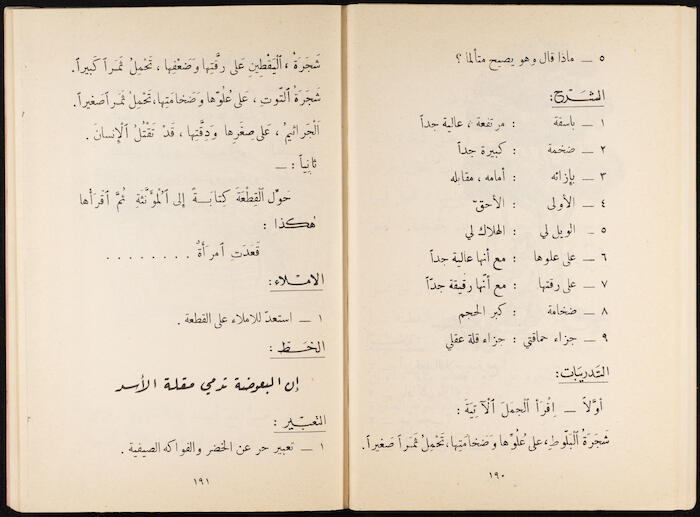 ٥ — ماذا قال وهو يصيح متألما ؟
الشرح :
١ — باسقة : مرتفعة ، عالية جداً
٢ — ضخمة : كبيرة جداً
٣ — بإزائه : أمامه ، مقابله
٤ — الأولى : الأحقّ
٥ — الويل لي : الهلاك لي
٦ — على علوها : مع أنها عالية جداً
٧ — على رقتها : مع أنّها رقيقة جدّاً
٨ — ضخامة : كبر الحجم
٩ — جزاء حماقتي : جزاء قلة عقلي
التدريبات :
أوّلاً — اِقْرَأ الْجمَلَ الْآتِيَةَ :
شَجَرَةُ الْبَلّوطِ ، عَلى عُلُوِّها وَضَخامَتِها ، تَحْمِلُ ثَمَراً صَغيراً .
١٩٠
شَجَرَةُ ، الْيَقْطينِ عَلى رِقَّتِها وَضَعْفِها ، تَحْمِلُ ثَمَراً كَبيراً .
شَجَرَةُ التّوتِ ، عَلى عُلُوِّها وَضَخامَتِها ، تَحْمِلُ ثَمَراً صَغيراً .
اَلْجَراثيمُ ، عَلى صِغَرِها وَدِقَّتِها ، قَدْ تَقْتُلُ الْإِنسانَ .
ثانِياً : —
حَوِّل الْقِطْعَةَ كِتابَةً إلى الْمُؤَنَّثَةِ ثُمَّ اقْرَأْها
هٰكذا :
قَعَدَتِ امرَأَةٌ . . . . . . . .
الاملاء :
١ — استعدّ للاملاء على القطعة .
الخط :
إن البعوضة تدمي مقلة الأسد
التعبير :
١ — تعبير حر عن الخضر والفواكه الصيفية .
١٩١